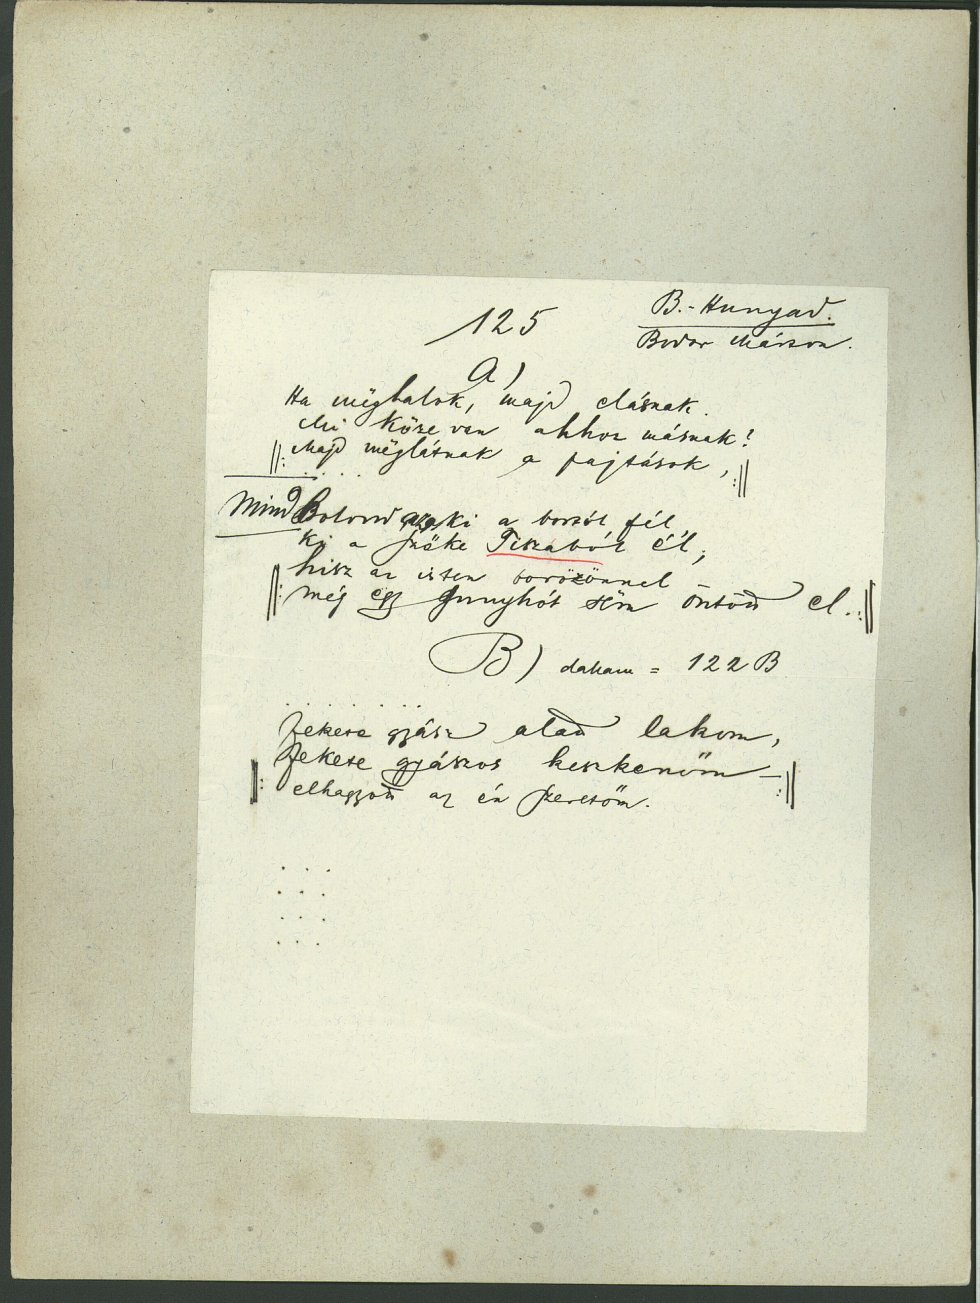 125
B.-Hunyad.
Bodor Márton.
A)
Ha mëghalok, majd elásnak.
Mi köze van ahhoz másnak!
Majd mëglátnak a pajtások,
. . . .
Mind Bolond aza ki a bortól fél,
Ki a szőke Tiszából él,
hisz az isten borözönnel
még egy gunyhót sëm öntött el.
B) dallam = 122 B
. . . . . . .
Fekete gyász alatt lakom,
Fekete gyászos keszkenőm –
elhagyott az én szeretőm.
. . .
. . .
. . .
. . .